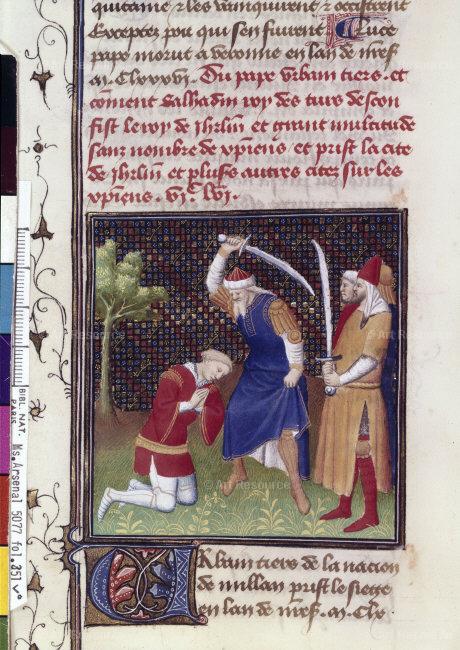 quitaine et les vainquirent et occistrent
Excepter pou qui sen fuirent Luce
pape morut a veronne en lan de nreſ
m. Clxxxvi. Du pape Urbain tiers. et
coment Salhadin roy des turs descon
fist le roy de ihrlm et grant multitude
sanz nombre de xpiens et prist la cite
de ihrlm et plusˢ autres citez sur les
xpiens. vi.c lvi.
Urbain tiers de la nacion
de millan prist le siege
en lan de nreſ. m. Clxx
BIBL. NAT.
PARIS
Ms. Arsenal 5077 fol. 351 v°
© Art Resource